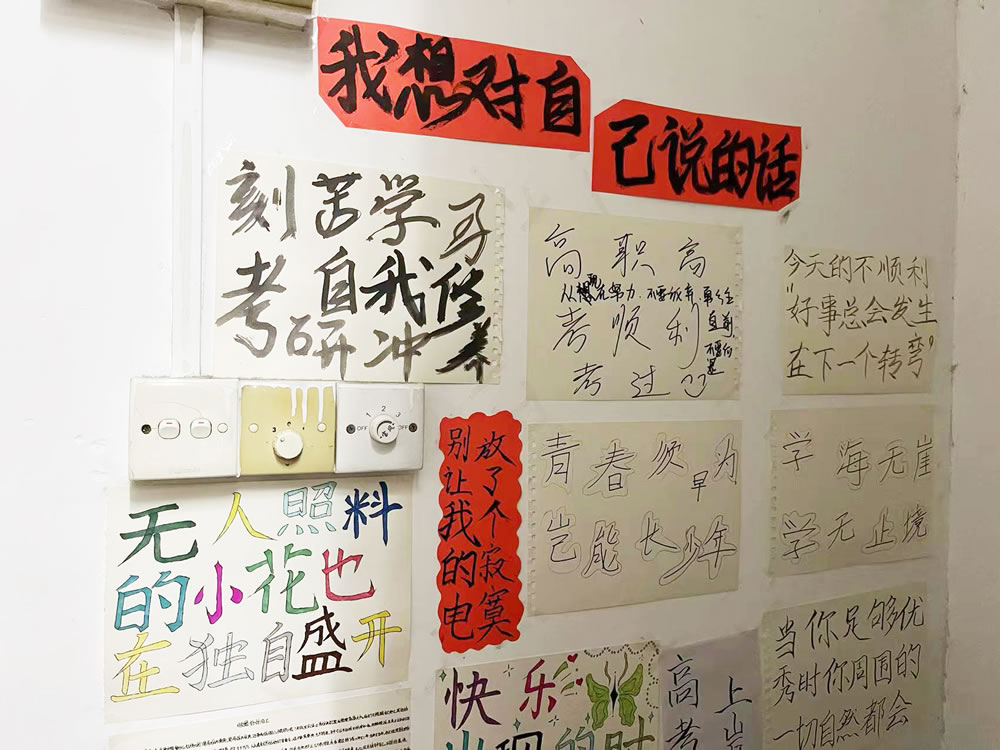 我想对自
己说的话
刻苦学习
考研冲
自我修养
高职高
从现在努力.不要放弃.勇往直
前
不要后
退
考顺利
考过
今天的不顺利
"好事总会发生
在下一个转弯"
OFF 1 2 3 OFF
放了个寂寞
别让我的电
青春须早为
岂能长少年
学海无崖
学无止境
无人照料
的小花也
在独自盛开
快乐
出现的时
高考
上岸
当你足够优
秀时你周围的
一切自然都会